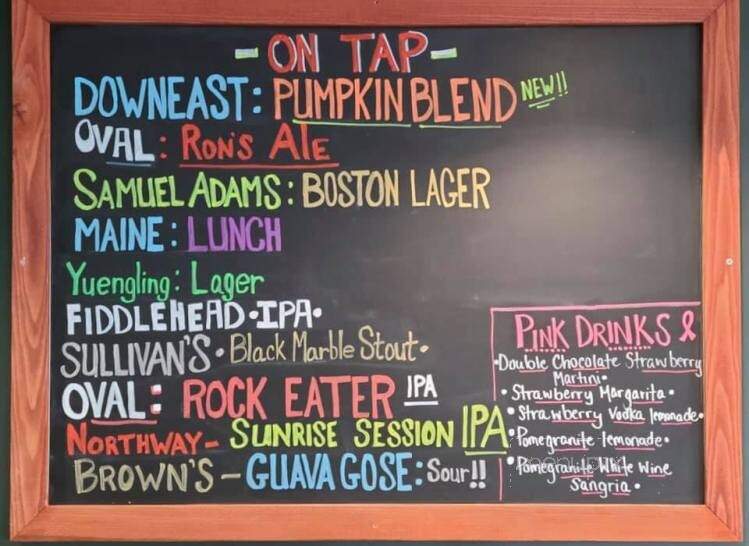 - ON TAP -
DOWNEAST: PUMPKIN BLEND NEW!!
OVAL: RON'S ALE
SAMUEL ADAMS: BOSTON LAGER
MAINE: LUNCH
Yuengling: Lager
FIDDLEHEAD • IPA •
SULLIVAN'S • Black Marble Stout •
OVAL: ROCK EATER IPA
NORTHWAY - SUNRISE SESSION IPA
BROWN'S - GUAVA GOSE: Sour!!
PINK DRINKS
• Double Chocolate Strawberry
Martini •
• Strawberry Margarita •
• Strawberry Vodka lemonade •
• Pomegranite lemonade •
• Pomegranite White Wine
Sangria •